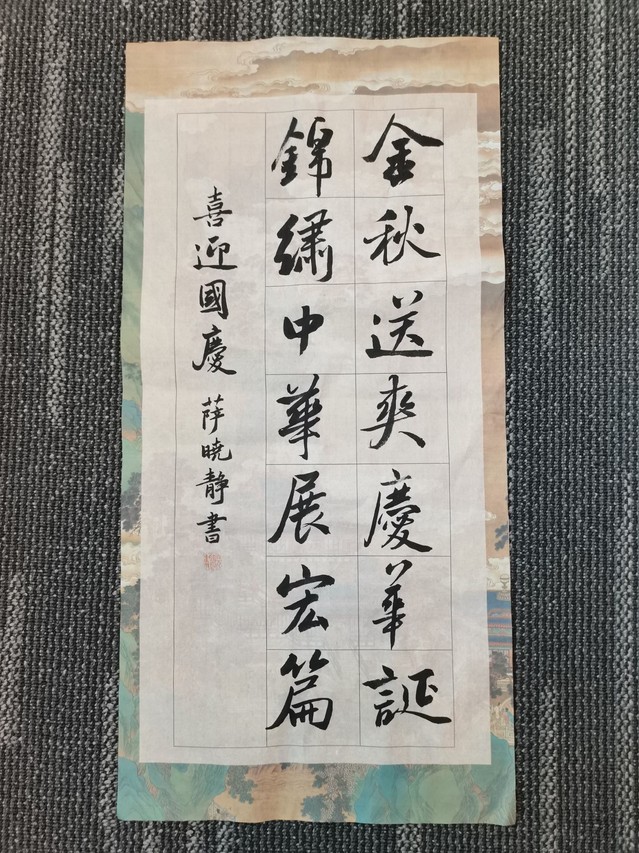 金秋送爽慶華誕
錦繡中華展宏篇
喜迎國慶 萨晓静書